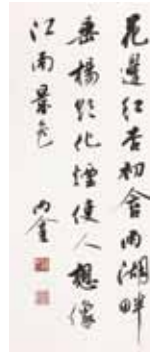 花邊紅杏初含雨湖畔
垂楊欲化煙使人想像
江南景色